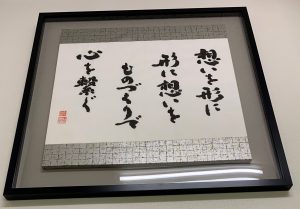 想いを形に
形に想いを
ものづくりで
心を繋ぐ